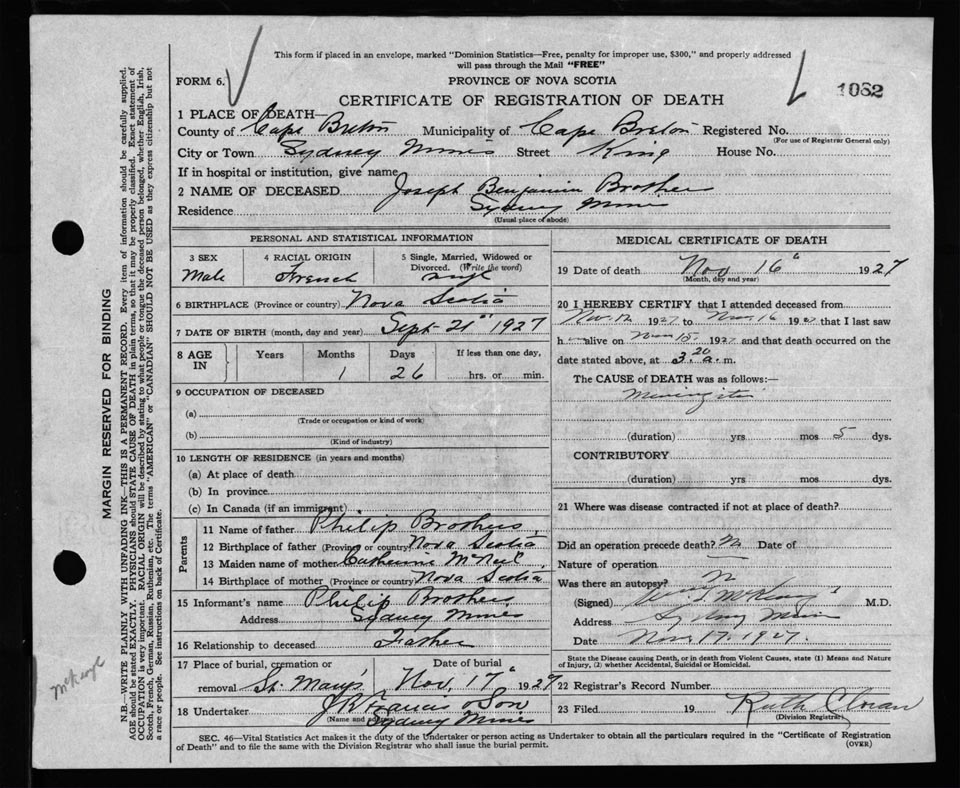 This form if placed in an envelope, marked "Dominion Statistics—Free, penalty for improper use, $300," and properly addressed
will pass through the Mail "FREE"
FORM 6.
PROVINCE OF NOVA SCOTIA
1082
CERTIFICATE OF REGISTRATION OF DEATH
1 PLACE OF DEATH—
County of Cape Breton Municipality of Cape Breton Registered No.
(For use of Registrar General only)
City or Town Sydney Mines Street King House No.
If in hospital or institution, give name
2 NAME OF DECEASED Joseph Benjamin Brothers
Residence Sydney Mines
(Usual place of abode)
PERSONAL AND STATISTICAL INFORMATION
3 SEX 4 RACIAL ORIGIN 5 Single, Married, Widowed or
Divorced. (Write the word)
Male French single
6 BIRTHPLACE (Province or country) Nova Scotia
7 DATE OF BIRTH (month, day and year) Sept 21" 1927
8 AGE IN Years Months Days If less than one day,
1 26 hrs. or min.
9 OCCUPATION OF DECEASED
(a)
(Trade or occupation or kind of work)
(b)
(Kind of industry)
10 LENGTH OF RESIDENCE (in years and months)
(a) At place of death
(b) In province
(c) In Canada (if an immigrant)
Parents
11 Name of father Philip Brothers
12 Birthplace of father (Province or country) Nova Scotia
13 Maiden name of mother Catherine McNeil
14 Birthplace of mother (Province or country) Nova Scotia
15 Informant's name Philip Brothers
Address Sydney Mines
16 Relationship to deceased Father
17 Place of burial, cremation or Date of burial
removal St. Marys Nov. 17" 1927
18 Undertaker J R Francis & Son
(Name and address) Sydney Mines
MEDICAL CERTIFICATE OF DEATH
19 Date of death Nov 16" 1927
(Month, day and year)
20 I HEREBY CERTIFY that I attended deceased from
Nov. 12 1927 to Nov. 16 1927 that I last saw
h alive on Nov 15. 1927 and that death occurred on the
date stated above, at 3.20 a. m.
The CAUSE OF DEATH was as follows:—
Meningitis
(duration) yrs mos 5 dys.
CONTRIBUTORY
(duration) yrs mos dys.
21 Where was disease contracted if not at place of death?
Did an operation precede death? No Date of
Nature of operation
Was there an autopsy? No
(Signed) M.D.
Address Sydney Mines
Date Nov. 17. 1927.
State the Disease causing Death, or in death from Violent Causes, state (1) Means and Nature
of Injury, (2) whether Accidental, Suicidal or Homicidal.
22 Registrar's Record Number
23 Filed 19 Ruth Cloran
(Division Registrar)
SEC. 46—Vital Statistics Act makes it the duty of the Undertaker or person acting as Undertaker to obtain all the particulars required in the "Certificate of Registration
of Death" and to file the same with the Division Registrar who shall issue the burial permit.
(OVER)
MARGIN RESERVED FOR BINDING
N.B.—WRITE PLAINLY WITH UNFADING INK—THIS IS A PERMANENT RECORD. Every item of information should be carefully supplied.
AGE should be stated EXACTLY. PHYSICIANS should STATE CAUSE OF DEATH in plain terms, so that it may be properly classified. Exact statement of
OCCUPATION is very important. RACIAL ORIGIN will be described by stating to what people or tongue the deceased person belonged, whether English, Irish,
Scotch, French, German, Russian, Ruthenian, etc. The terms "AMERICAN" or "CANADIAN" SHOULD NOT BE USED as they express citizenship but not
a race or people. See instructions on back of Certificate.